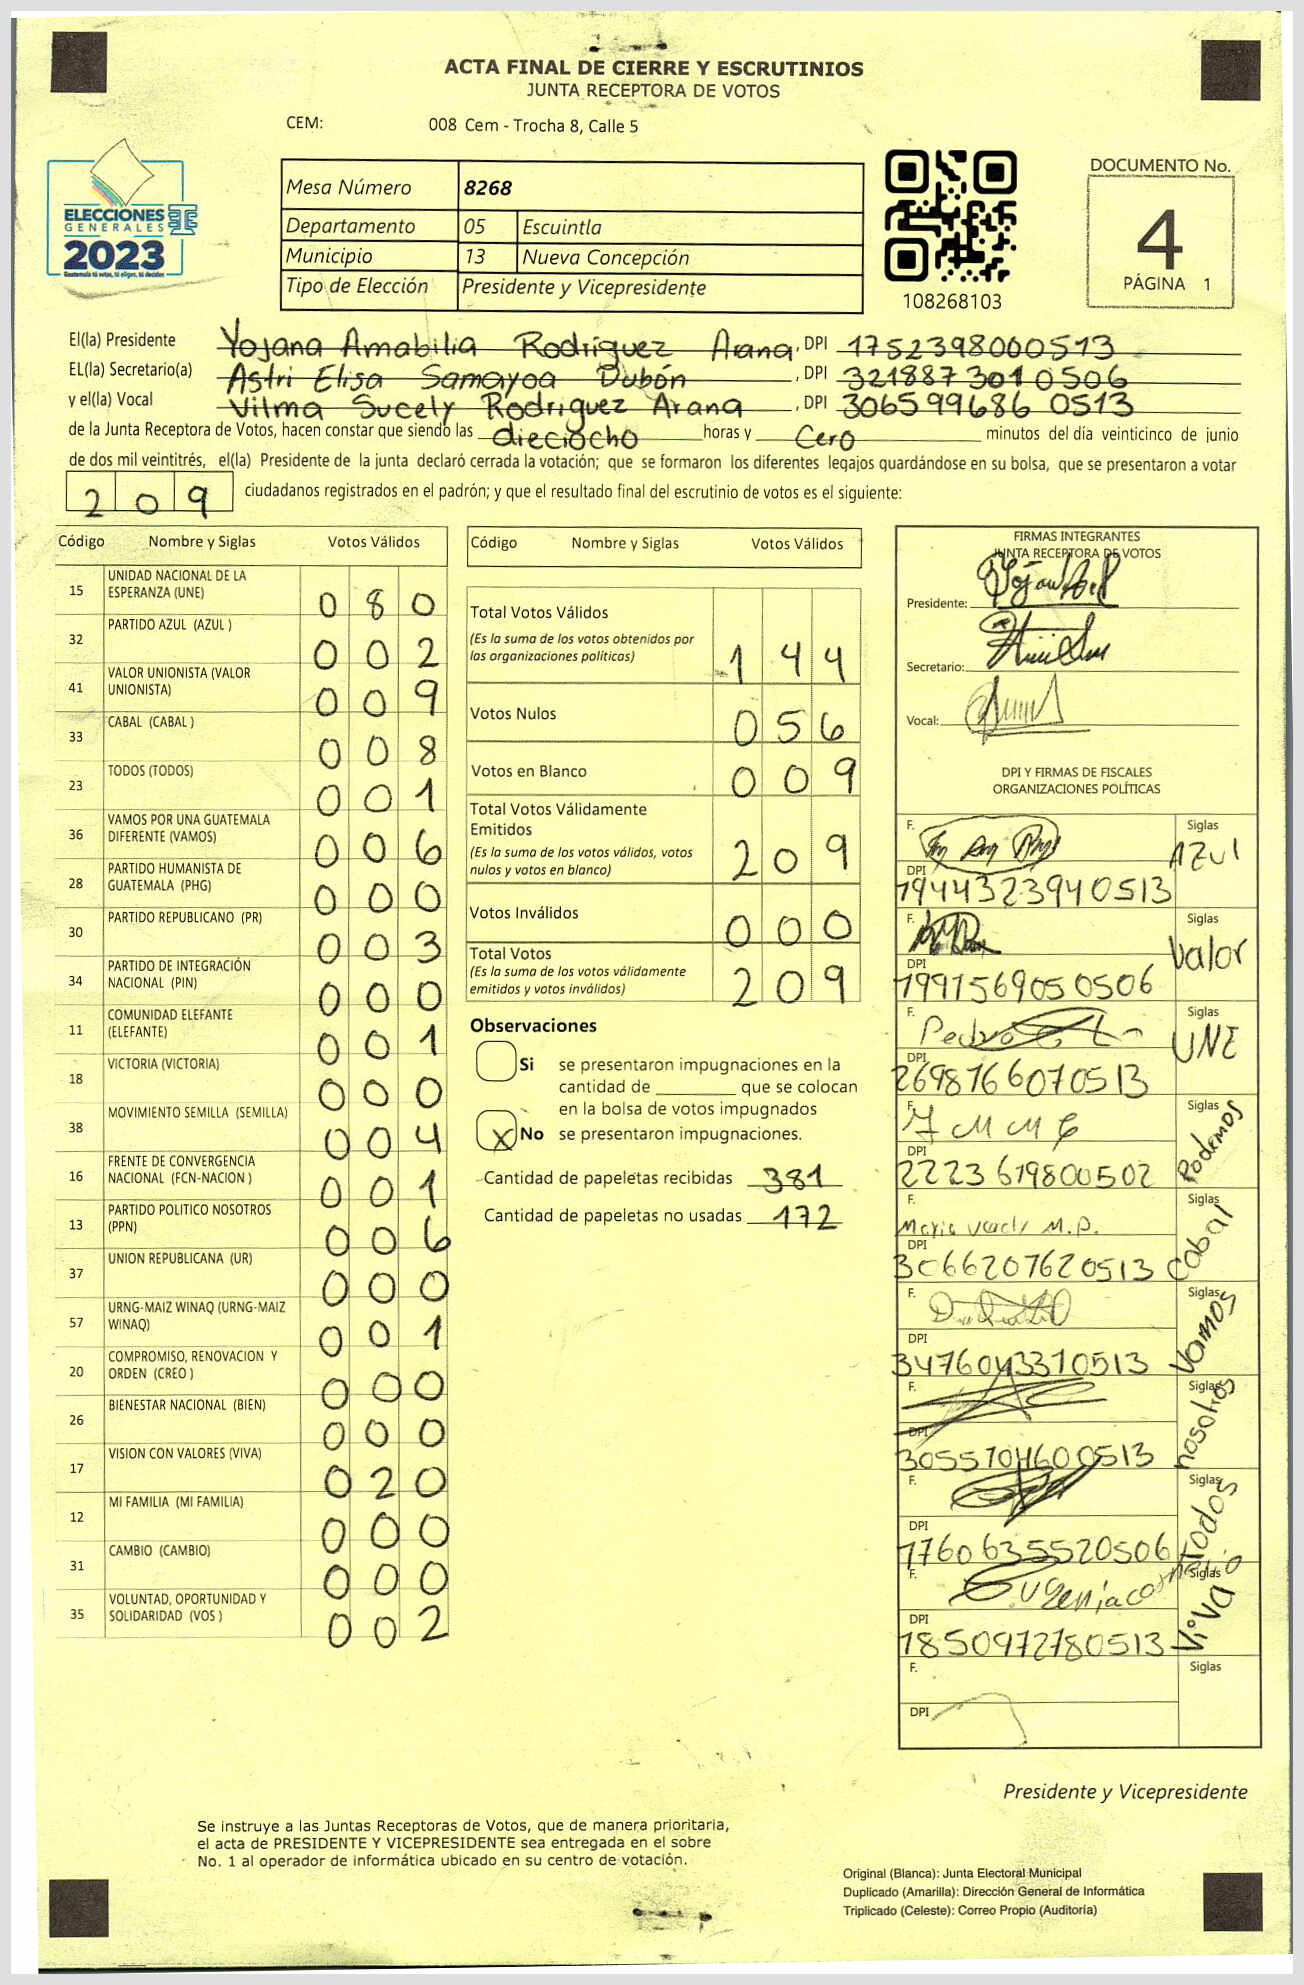 ACTA FINAL DE CIERRE Y ESCRUTINIOS
JUNTA RECEPTORA DE VOTOS
CEM: 008 Cem - Trocha 8, Calle 5
ELECCIONES
GENERALES
2023
Guatemala tú votas, tú eliges, tú decides
Mesa Número 8268
Departamento 05 Escuintla
Municipio 13 Nueva Concepción
Tipo de Elección Presidente y Vicepresidente
108268103
DOCUMENTO No.
4
PÁGINA 1
El(la) Presidente Yojana Amabilia Rodriguez Arana, DPI 1752398000513
EL(la) Secretario(a) Astri Elisa Samayoa Dubón, DPI 3218873010506
y el(la) Vocal Vilma Sucely Rodriguez Arana, DPI 3065996860513
de la Junta Receptora de Votos, hacen constar que siendo las dieciocho horas y Cero minutos del día veinticinco de junio
de dos mil veintitrés, el(la) Presidente de la junta declaró cerrada la votación; que se formaron los diferentes legajos quardándose en su bolsa, que se presentaron a votar
209 ciudadanos registrados en el padrón; y que el resultado final del escrutinio de votos es el siguiente:
Código Nombre y Siglas Votos Válidos
15 UNIDAD NACIONAL DE LA ESPERANZA (UNE) 080
32 PARTIDO AZUL (AZUL ) 002
41 VALOR UNIONISTA (VALOR UNIONISTA) 009
33 CABAL (CABAL ) 008
23 TODOS (TODOS) 001
36 VAMOS POR UNA GUATEMALA DIFERENTE (VAMOS) 006
28 PARTIDO HUMANISTA DE GUATEMALA (PHG) 000
30 PARTIDO REPUBLICANO (PR) 003
34 PARTIDO DE INTEGRACIÓN NACIONAL (PIN) 000
11 COMUNIDAD ELEFANTE (ELEFANTE) 001
18 VICTORIA (VICTORIA) 000
38 MOVIMIENTO SEMILLA (SEMILLA) 004
16 FRENTE DE CONVERGENCIA NACIONAL (FCN-NACION ) 001
13 PARTIDO POLITICO NOSOTROS (PPN) 006
37 UNION REPUBLICANA (UR) 000
57 URNG-MAIZ WINAQ (URNG-MAIZ WINAQ) 001
20 COMPROMISO, RENOVACION Y ORDEN (CREO ) 000
26 BIENESTAR NACIONAL (BIEN) 000
17 VISION CON VALORES (VIVA) 020
12 MI FAMILIA (MI FAMILIA) 000
31 CAMBIO (CAMBIO) 000
35 VOLUNTAD, OPORTUNIDAD Y SOLIDARIDAD (VOS ) 002
Código Nombre y Siglas Votos Válidos
Total Votos Válidos 144
(Es la suma de los votos obtenidos por
las organizaciones políticas)
Votos Nulos 056
Votos en Blanco 009
Total Votos Válidamente
Emitidos 209
(Es la suma de los votos válidos, votos
nulos y votos en blanco)
Votos Inválidos 000
Total Votos 209
(Es la suma de los votos válidamente
emitidos y votos inválidos)
Observaciones
Si se presentaron impugnaciones en la
cantidad de ________ que se colocan
en la bolsa de votos impugnados
X No se presentaron impugnaciones.
Cantidad de papeletas recibidas 381
Cantidad de papeletas no usadas 172
FIRMAS INTEGRANTES
JUNTA RECEPTORA DE VOTOS
Presidente:
Secretario:
Vocal:
DPI Y FIRMAS DE FISCALES
ORGANIZACIONES POLÍTICAS
F. Siglas AZUl
DPI 1944323940513
F. Siglas Valor
DPI 1991569050506
F. Pedro Siglas UNE
DPI 2698766070513
F. Siglas Podemos
DPI 2223619800502
F. Siglas Cabal
DPI 3066207620513
F. Siglas Vamos
DPI 3476043310513
F. Siglas nosotros
DPI 3055704600513
F. Siglas Todos
DPI 1760635520506
F. Siglas ViVa
DPI 1850972780513
F. Siglas
DPI
Presidente y Vicepresidente
Se instruye a las Juntas Receptoras de Votos, que de manera prioritaria,
el acta de PRESIDENTE Y VICEPRESIDENTE sea entregada en el sobre
No. 1 al operador de informática ubicado en su centro de votación.
Original (Blanca): Junta Electoral Municipal
Duplicado (Amarilla): Dirección General de Informática
Triplicado (Celeste): Correo Propio (Auditoría)